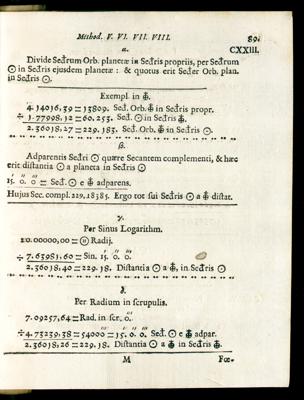 Method. V. VI. VII. VIII. 89.
CXXIII.
α.
Divide Sectrum Orb. planetæ in Sectris propriis, per Sectrum
☉ in Sectris ejusdem planetæ : & quotus erit Sector Orb. plan.
in Sectris ☉.
Exempl. in
4. 14016,39 = 13809. Sect. Orb. in Sectris propr.
÷ 1. 77998,12 = 60. 253. Sect. ☉ in Sectris
2. 36018,27 = 229. 183. Sect. Orb. in Sectris ☉.
β.
Adparentis Sectri ☉ quære Secantem complementi, & hæc
erit distantia ☉ a planeta in Sectris ☉
15. 0. 0 = Sect. ☉ e adparens.
Hujus Sec. compl. 229,18385. Ergo tot sui Sectris ☉ a distat.
γ.
Per Sinus Logarithm.
20. 00000,00 = Radij.
÷ 7. 63981,60 = Sin. 15. 0. 0.
2. 36018,40 = 229. 18. Distantia ☉ a , in Sectris ☉
δ.
Per Radium in scrupulis.
7. 09257,64 = Rad. in scr. 0.
÷ 4. 73239,38 = 54000 = 15. 0. 0. Sect. ☉ e adpar.
2. 36018,26 = 229. 18. Distantia ☉ a in Sectris
M Fœ-